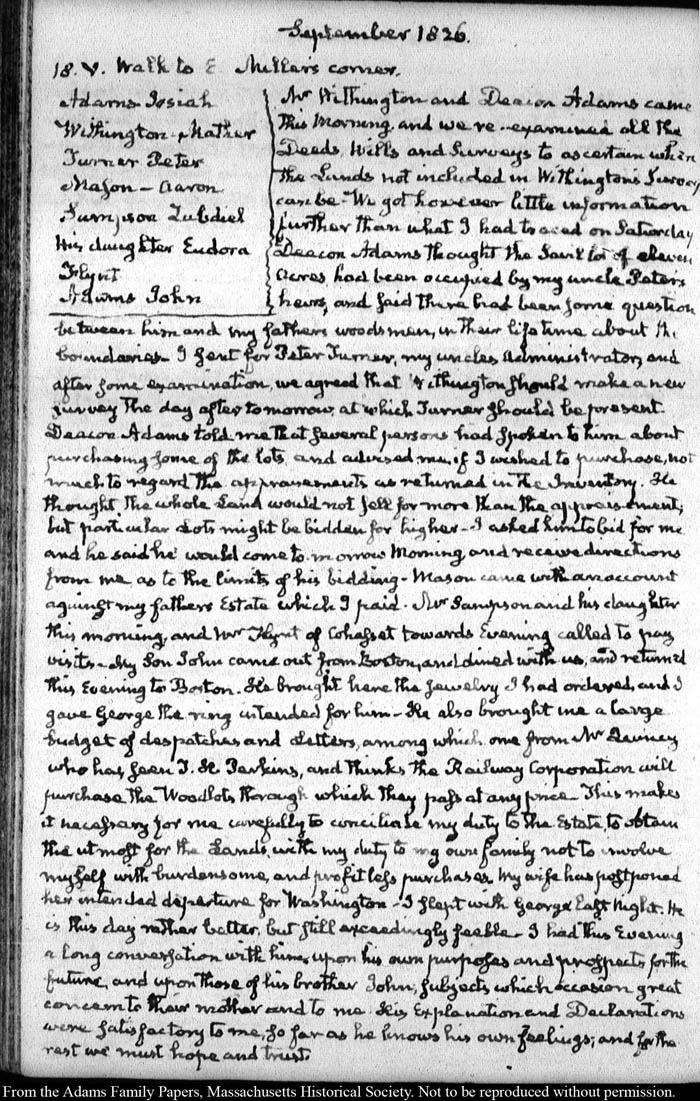 September 1826.
18. V. Walk to E Miller's corner.
Adams Josiah
Withington Mather
Turner Peter
Mason - Aaron
Sampson Zubdiel
His daughter Eudora
Flynt
Adams John
Mr Withington and Deacon Adams came
this Morning, and we re-examined all the
Deeds, Wills and Surveys to ascertain where
the Lands not included in Withington's Survey
can be - We got however little information
further than what I had traced on Saturday
Deacon Adams thought the Savil lot of eleven
Acres had been occupied by my uncle Peter's
heirs, and said there had been some question
between him and my fathers woodsmen, in their life time about the
boundaries - I sent for Peter Turner, my uncles Administrator, and
after some examination, we agreed that Withington should make a new
survey the day after to morrow, at which Turner should be present.
Deacon Adams told me that several persons had spoken to him about
purchasing some of the lots, and advised me, if I wished to purchase, not
much to regard the appraisements as returned in the Inventory. He
thought the whole Land would not sell for more than the appraisement;
but particular Lots might be bidden for higher - I asked him to bid for me
and he said he would come to-morrow Morning and receive directions
from me as to the limits of his bidding - Mason came with an account
against my fathers Estate which I paid. Mr Sampson and his daughter
this morning, and Mr Flynt of Cohasset towards Evening called to pay
visits - My Son John came out from Boston, and dined with us, and returned
this Evening to Boston. He brought here the Jewelry I had ordered, and I
gave George the ring intended for him - He also brought me a large
budget of despatches and Letters, among which one from Mr Quincy
who has seen T. H. Perkins, and thinks the Railway Corporation will
purchase the Woodlots through which they pass at any price. This makes
it necessary for me carefully to conciliate my duty to the Estate, to obtain
the utmost for the Lands, with my duty to my own family not to involve
myself with burdensome, and profitless purchases. My wife has postponed
her intended departure for Washington - I slept with George last Night. He
is this day rather better, but still exceedingly feeble - I had this Evening
a long conversation with him, upon his own purposes and prospects for the
future, and upon those of his brother John, subjects which occasion great
concern to their mother and to me. His Explanation and Declarations
were satisfactory to me, so far as he knows his own feelings; and for the
rest we must hope and trust.
From the Adams Family Papers, Massachusetts Historical Society. Not to be reproduced without permission.